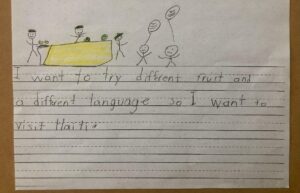 I want to try different fruit and
a different language so I want to
visit Haiti.